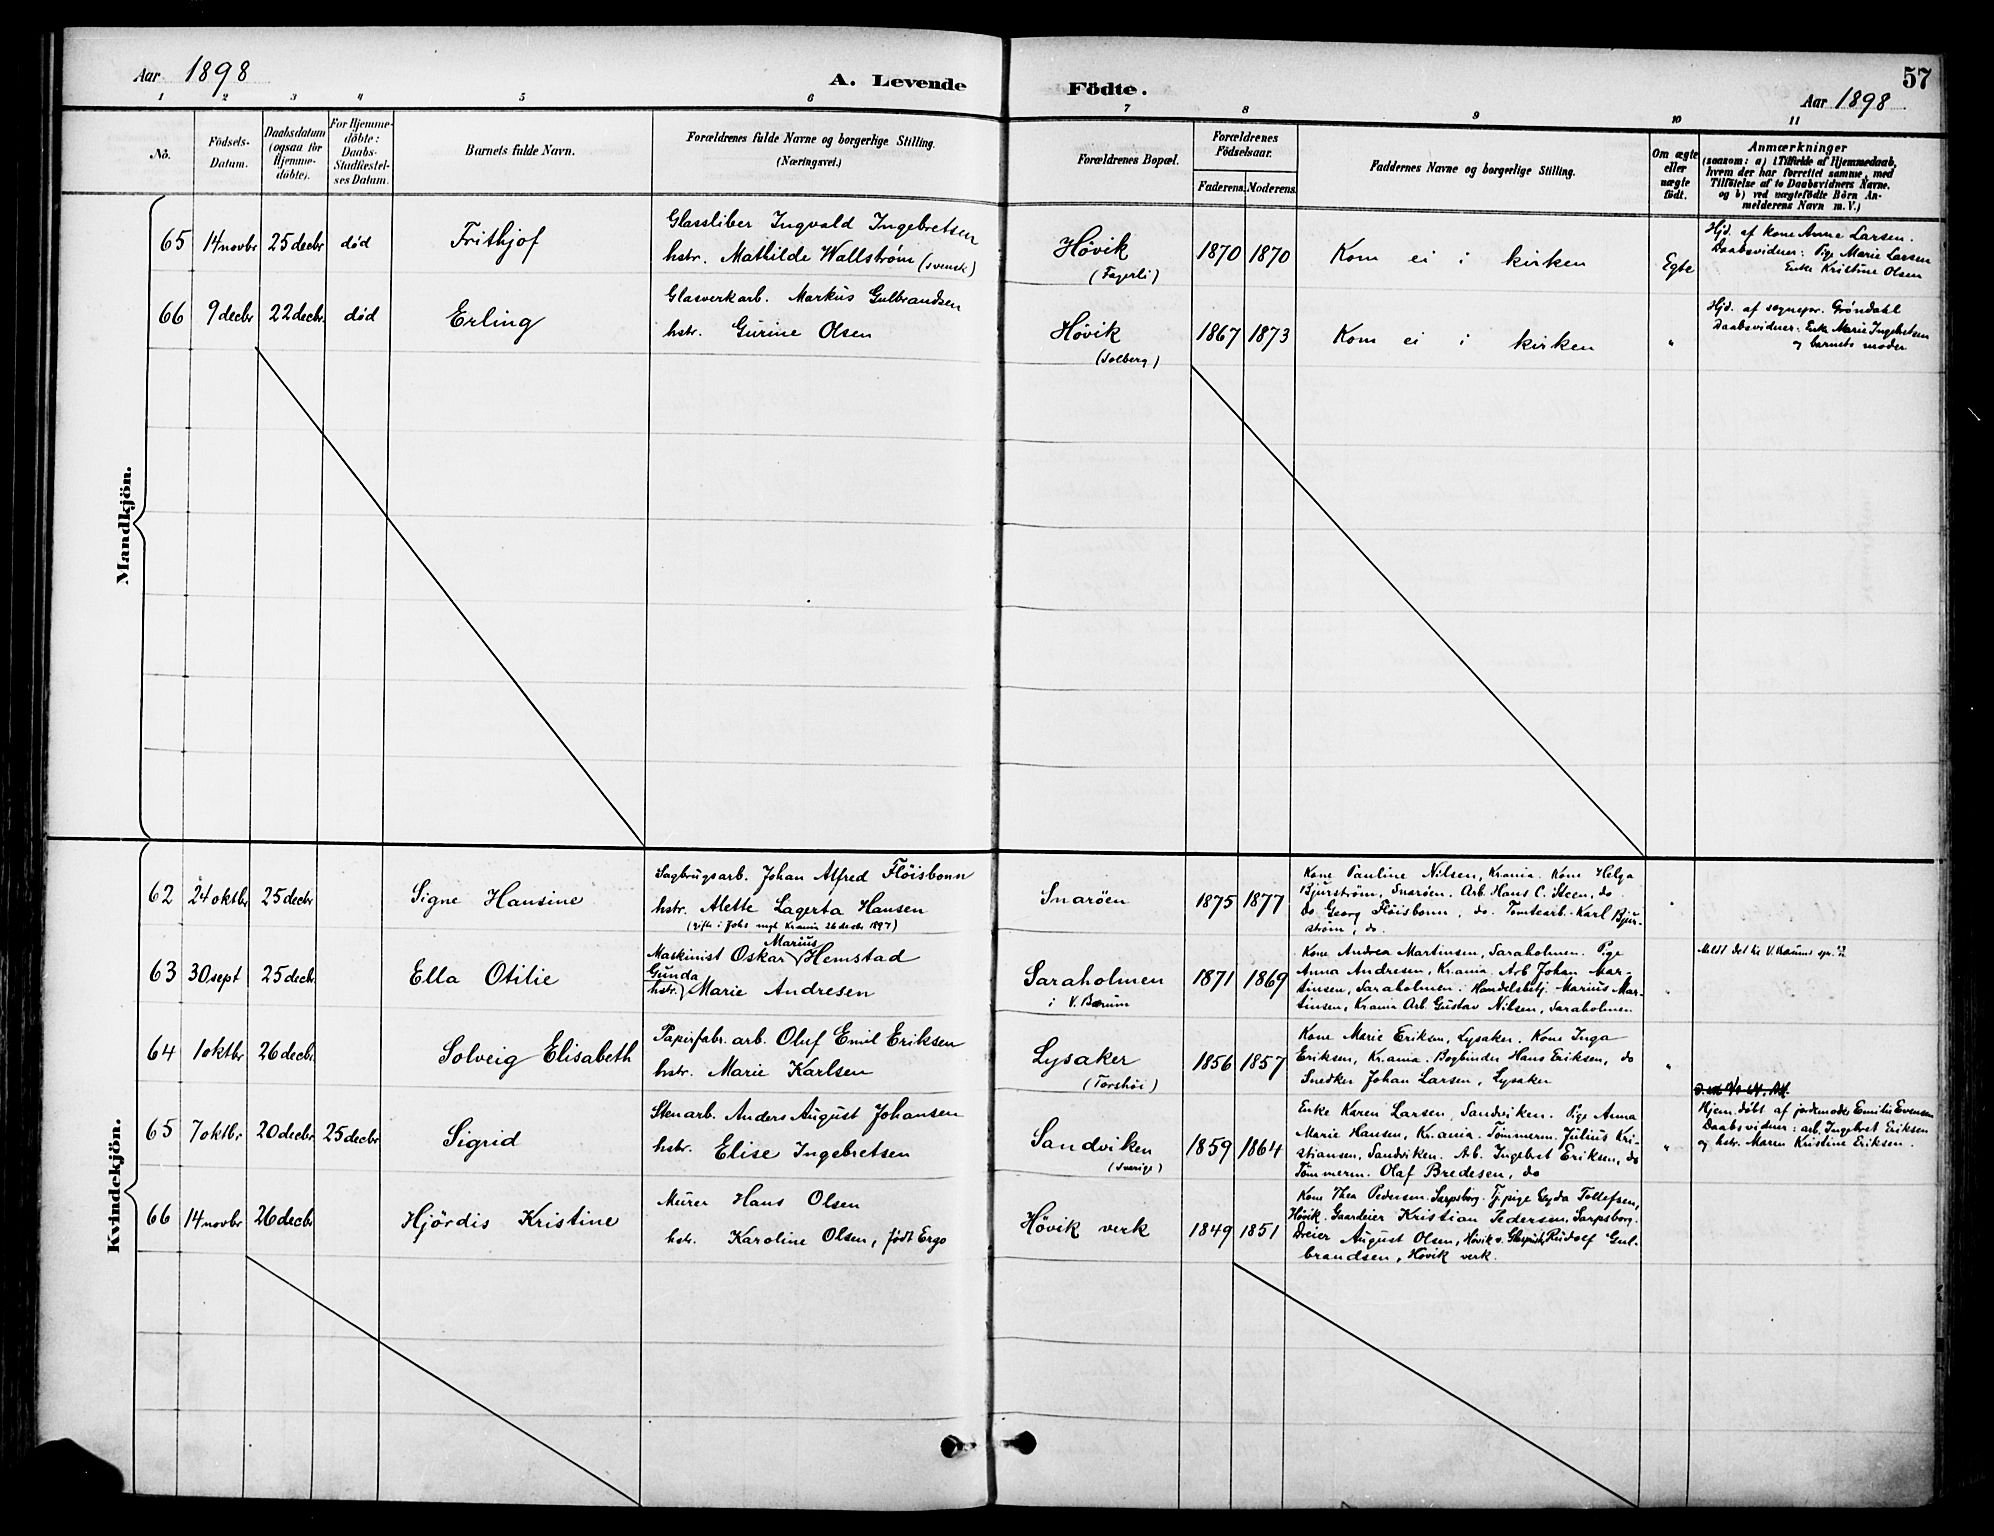 Aar 1898
A. Levende
Födte.
57
Aar 1898
1 2 3 4 5 6 7 8 9 10 11
No.
Födsels-
Datum.
Daabsdatum
(ogsaa for
Hjemme-
döbte).
For Hjemme-
döbte:
Daabs-
Stadfæstel-
ses Datum.
Barnets fulde Navn.
Forældrenes fulde Navne og borgerlige Stilling.
(Næringsvei.)
Forældrenes Bopæl.
Forældrenes
Födselsaar.
Faderens. Moderens.
Faddernes Navne og borgerlige Stilling.
Om ægte
eller
uægte
födt.
Anmærkninger
(saasom: a) i Tilfælde af Hjemmedaab,
hvem der har forrettet samme, med
Tilföielse af to Daabsvidners Navne.
og b) ved uægtefödte Börn An-
melderens Navn m. V.)
Mandkjön.
65 14 novbr 25 decbr død Frithjof
Glassliber Ingvald Ingebretsen
hstr. Mathilde Wallstrøm (svensk)
Høvik
(Fagerli)
1870 1870 Kom ei i kirken Egte
Hjd. af kone Anne Larsen.
Daabsvidner: Pige Marie Larsen
Enke Kristine Olsen
66 9 decbr 22 decbr. død Erling
Glasverkarb. Markus Gulbrandsen
hstr. Gurine Olsen
Høvik
(Solberg)
1867 1873 Kom ei i kirken "
Hjd. af sognepr. Grøndahl
Daabsvidner: Enke Marie Ingebretsen
og barnets moder
Kvindekjön.
62 24 oktbr 25 decbr Signe Hansine
Sagbrugsarb. Johan Alfred Fløisbonn
hstr. Alette Lagerta Hansen
(gifte i Johs Krania 26 decbr 1897)
Snarøen
1875 1877
Kone Pauline Nilsen, Krania. Kone Helga
Bjurstrøm, Snarøen. Arb. Hans C. Steen, do
do Georg Fløisbonn, do. Tomtearb. Karl Bjur-
strøm, do.
"
63 30 sept 25 decbr. Ella Otilie
Marius
Maskinist Oskar Hemstad
Gunda
hstr. Marie Andresen
Saraholmen
i V. Bærum
1871 1869
Kone Andrea Martinsen, Saraholmen. Pige
Anna Andresen, Krania. Arb Johan Mar-
tinsen, Saraholmen. Handelsbetj. Marius Mar-
tinsen, Krania Arb. Gustav Nilsen, Saraholmen
"
Meldt til V. Bærums spr.
64 1 oktbr 26 decbr. Solveig Elisabeth
Papirfabr. arb. Oluf Emil Eriksen
hstr. Marie Karlsen
Lysaker
(Torshøi)
1856 1857
Kone Marie Eriksen, Lysaker. Kone Inga
Eriksen, Krania. Bogbinder Hans Eriksen, do
Snedker Johan Larsen, Lysaker
"
65 7 oktbr 20 decbr 25 decbr Sigrid
Stenarb. Anders August Johansen
hstr. Elise Ingebretsen
Sandviken
(Sverige)
1859 1864
Enke Karen Larsen, Sandviken. Pige Anna
Marie Hansen, Krania. Tømmerm. Julius Kri-
stiansen, Sandviken. Ab. Ingebret Eriksen, do
Tømmerm. Olaf Bredesen, do
"
Hjem. døbt af jordemoder Emilie Evensen
Daabsvidner: arb. Ingebret Eriksen
og hstr. Maren Kristine Eriksen.
66 14 novbr 26 decbr Hjördis Kristine
Murer Hans Olsen
hstr. Karoline Olsen, født Ergo
Høvik verk
1849 1851
Kone Thea Pedersen Sarpsborg. Tj. pige Gyda Tollefsen,
Høvik. Gaardeier Kristian Pedersen, Sarpsborg.
Dreier August Olsen, Høvik v. Rudolf Gul-
brandsen, Høvik verk.